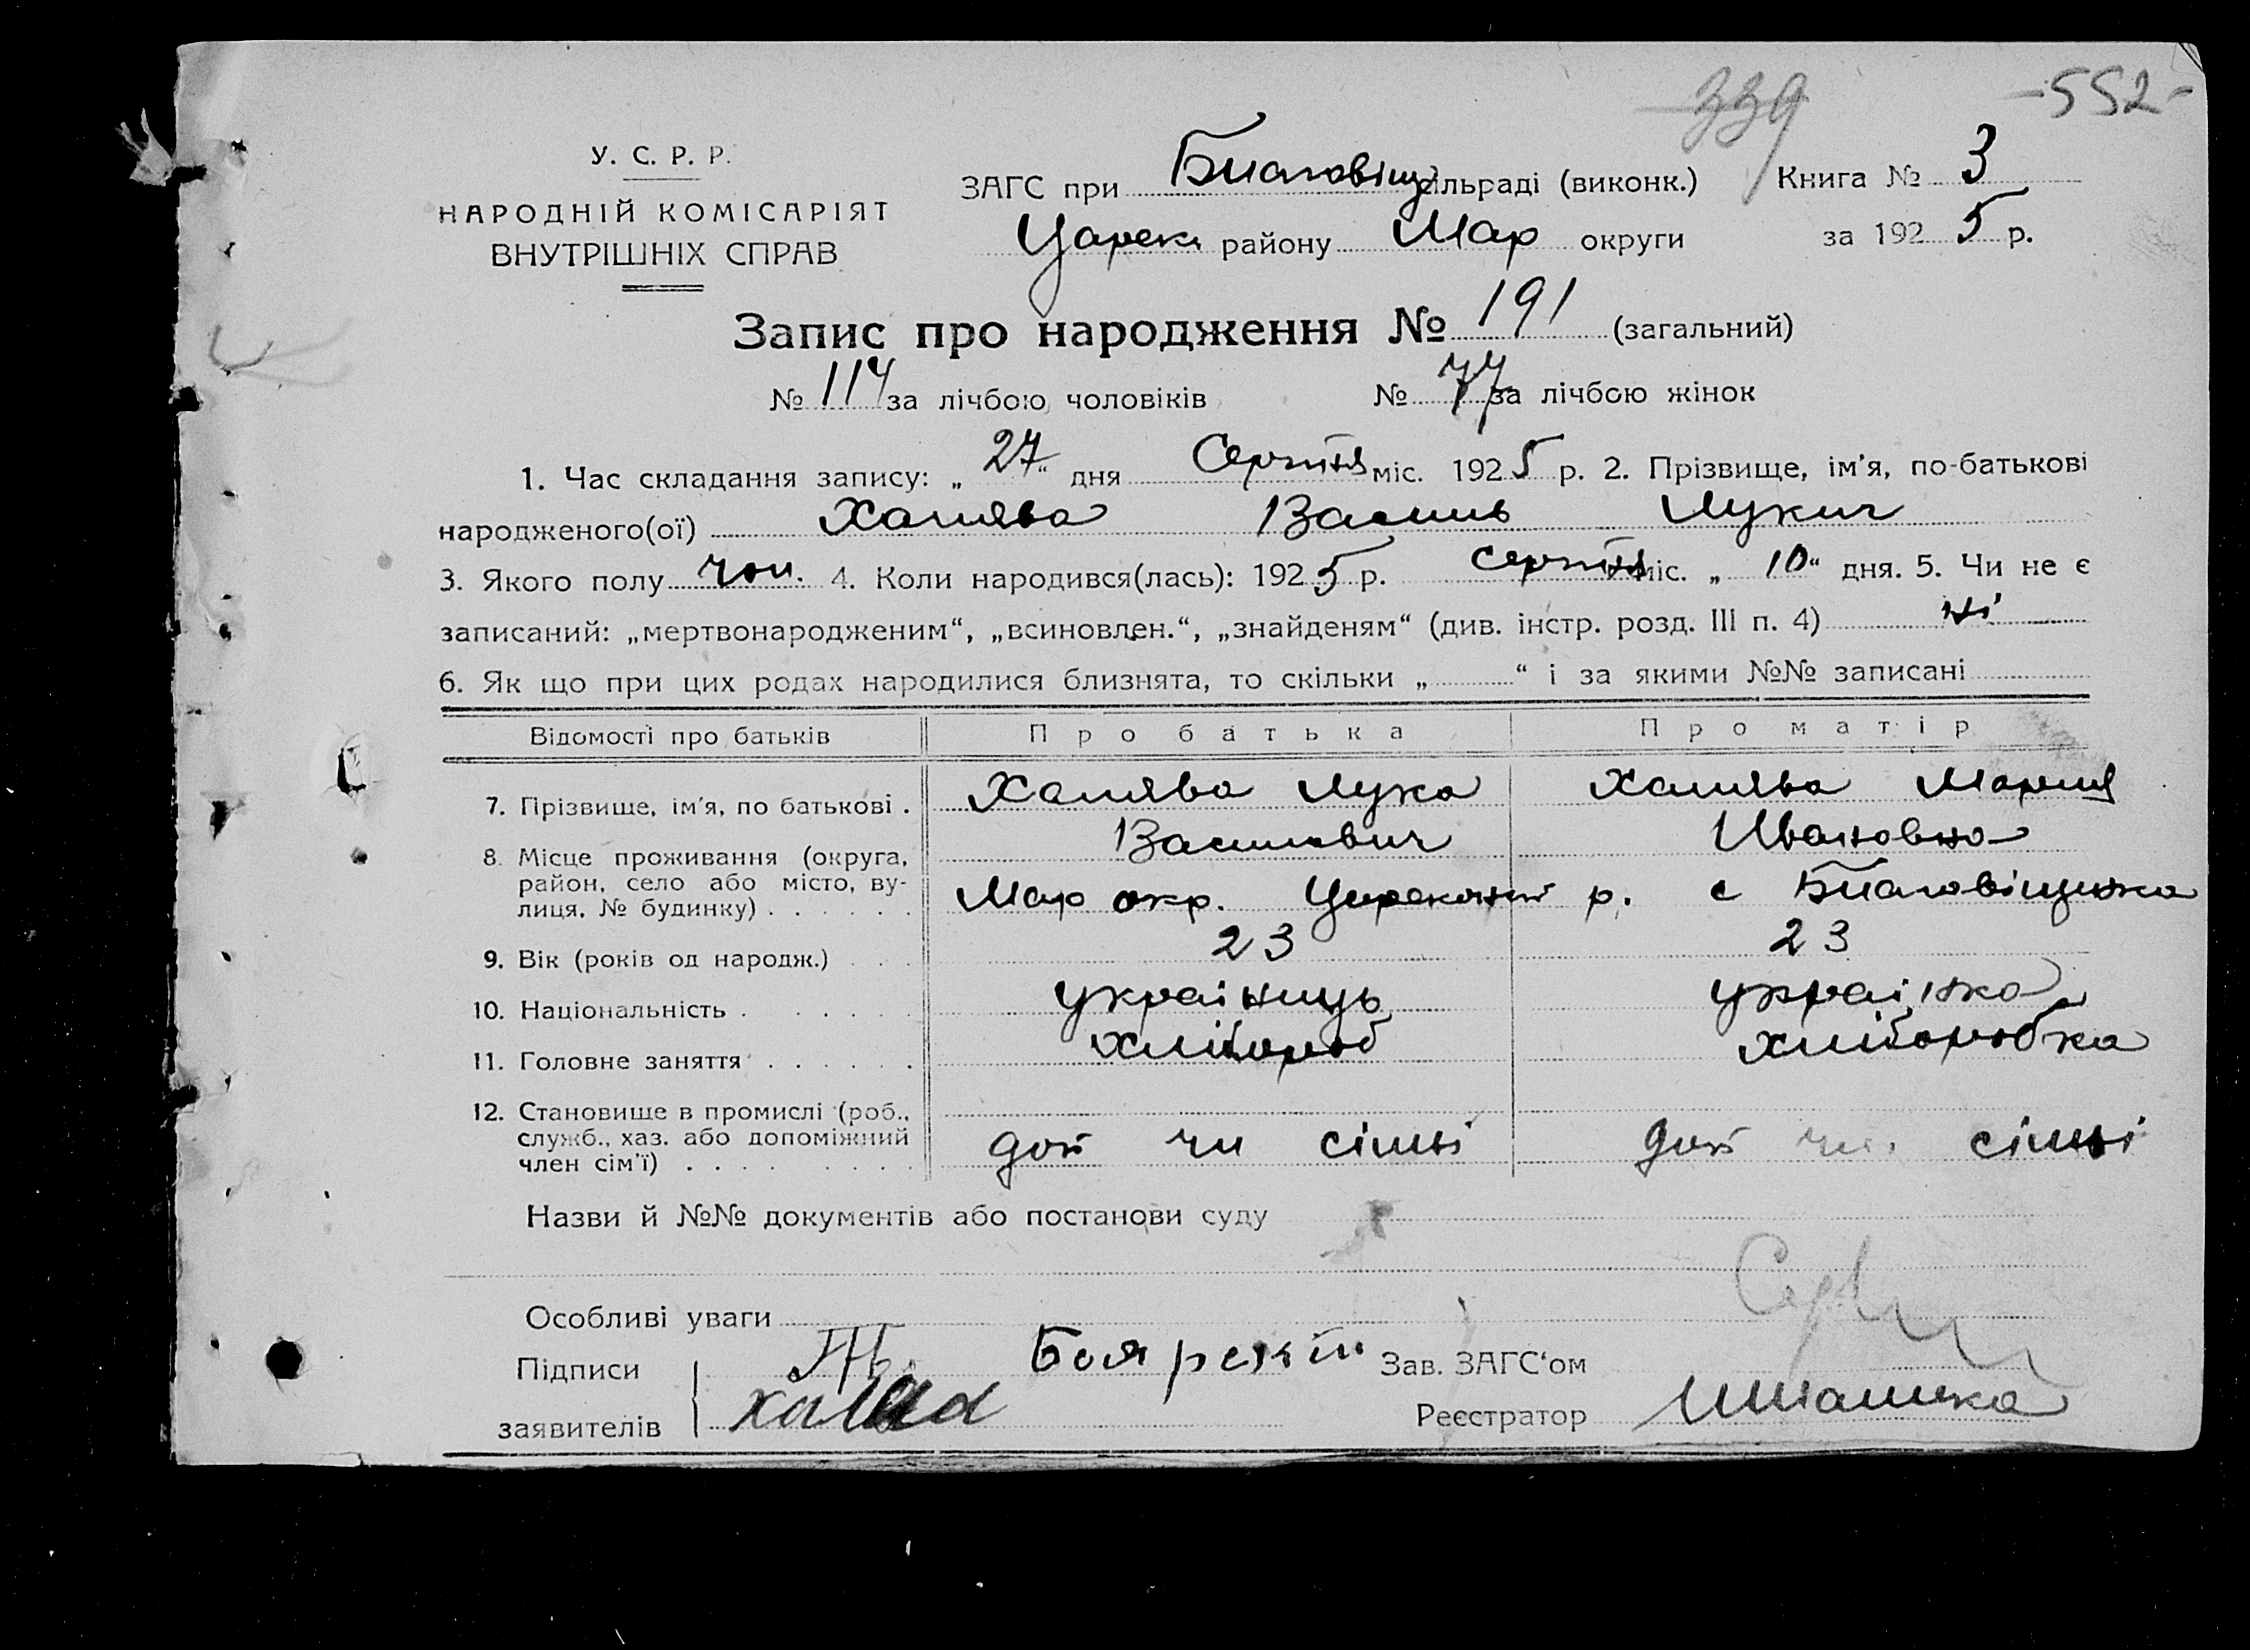 339 -552-
У. С. Р. Р.
НАРОДНІЙ КОМІСАРІЯТ
ВНУТРІШНІХ СПРАВ
ЗАГС при Благовіщ сільраді (виконк.) Книга № 3
Царек. району Мар округи за 1925 р.
Запис про народження № 191 (загальний)
№ 114 за лічбою чоловіків № 77 за лічбою жінок
1. Час складання запису: „27“ дня Серпня міс. 1925 р. 2. Прізвище, ім’я, по-батькові
народженого(ої) Халява Василь Лукич
3. Якого полу чол. 4. Коли народився(лась): 1925 р. серпня міс. „10“ дня. 5. Чи не є
записаний: „мертвонародженим“, „всиновлен.“, „знайденям“ (див. інстр. розд. III п. 4) ні
6. Як що при цих родах народилися близнята, то скільки „ “ і за якими №№ записані
Відомості про батьків Про батька Про матір
7. Прізвище, ім’я, по батькові . Халява Лука Халява Мария
Василович Ивановна
8. Місце проживання (округа,
район, село або місто, ву-
лиця, № будинку) . . . . . . Мар окр. р. с Благовіщинка
9. Вік (років од народж.) . . . 23 23
10. Національність . . . . . . українць українка
11. Головне заняття . . . . . . хлібороб хліборобка
12. Становище в промислі (роб.,
служб., хаз. або допоміжний
член сім’ї) . . . . . . . . доп чл сімьі доп чл. сімьі
Назви й №№ документів або постанови суду
Особливі уваги
Підписи Зав. ЗАГС‘ом
заявителів Реєстратор